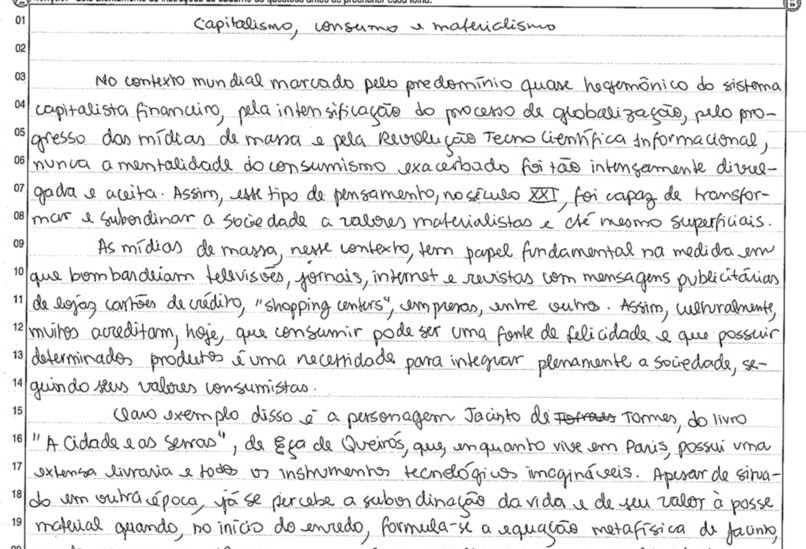 Capitalismo, consumo e materialismo
No contexto mundial marcado pelo predomínio quase hegemônico do sistema
capitalista financeiro, pela intensificação do processo de globalização, pelo pro-
gresso das mídias de massa e pela Revolução Tecno Científica Informacional,
nunca a mentalidade do consumismo exacerbado foi tão intensamente divul-
gada e aceita. Assim, esse tipo de pensamento, no século XXI, foi capaz de transfor-
mar e subordinar a sociedade a valores materialistas e até mesmo superficiais.
As mídias de massa, nesse contexto, tem papel fundamental na medida em
que bombardeiam televisões, jornais, internet e revistas com mensagens publicitárias
de lojas, cartões de crédito, "shopping centers", empresas, entre outros. Assim, culturalmente,
muitos acreditam, hoje, que consumir pode ser uma fonte de felicidade e que possuir
determinados produtos é uma necessidade para integrar plenamente a sociedade, se-
guindo seus valores consumistas.
Claro exemplo disso é a personagem Jacinto de Tormes, do livro
"A Cidade e as Serras", de Eça de Queirós, que, enquanto vive em Paris, possui uma
extensa livraria e todos os instrumentos tecnológicos imagináveis. Apesar de situa-
do em outra época, já se percebe a subordinação da vida e de seu valor à posse
material quando, no início do enredo, formula-se a equação metafísica de Jacinto,